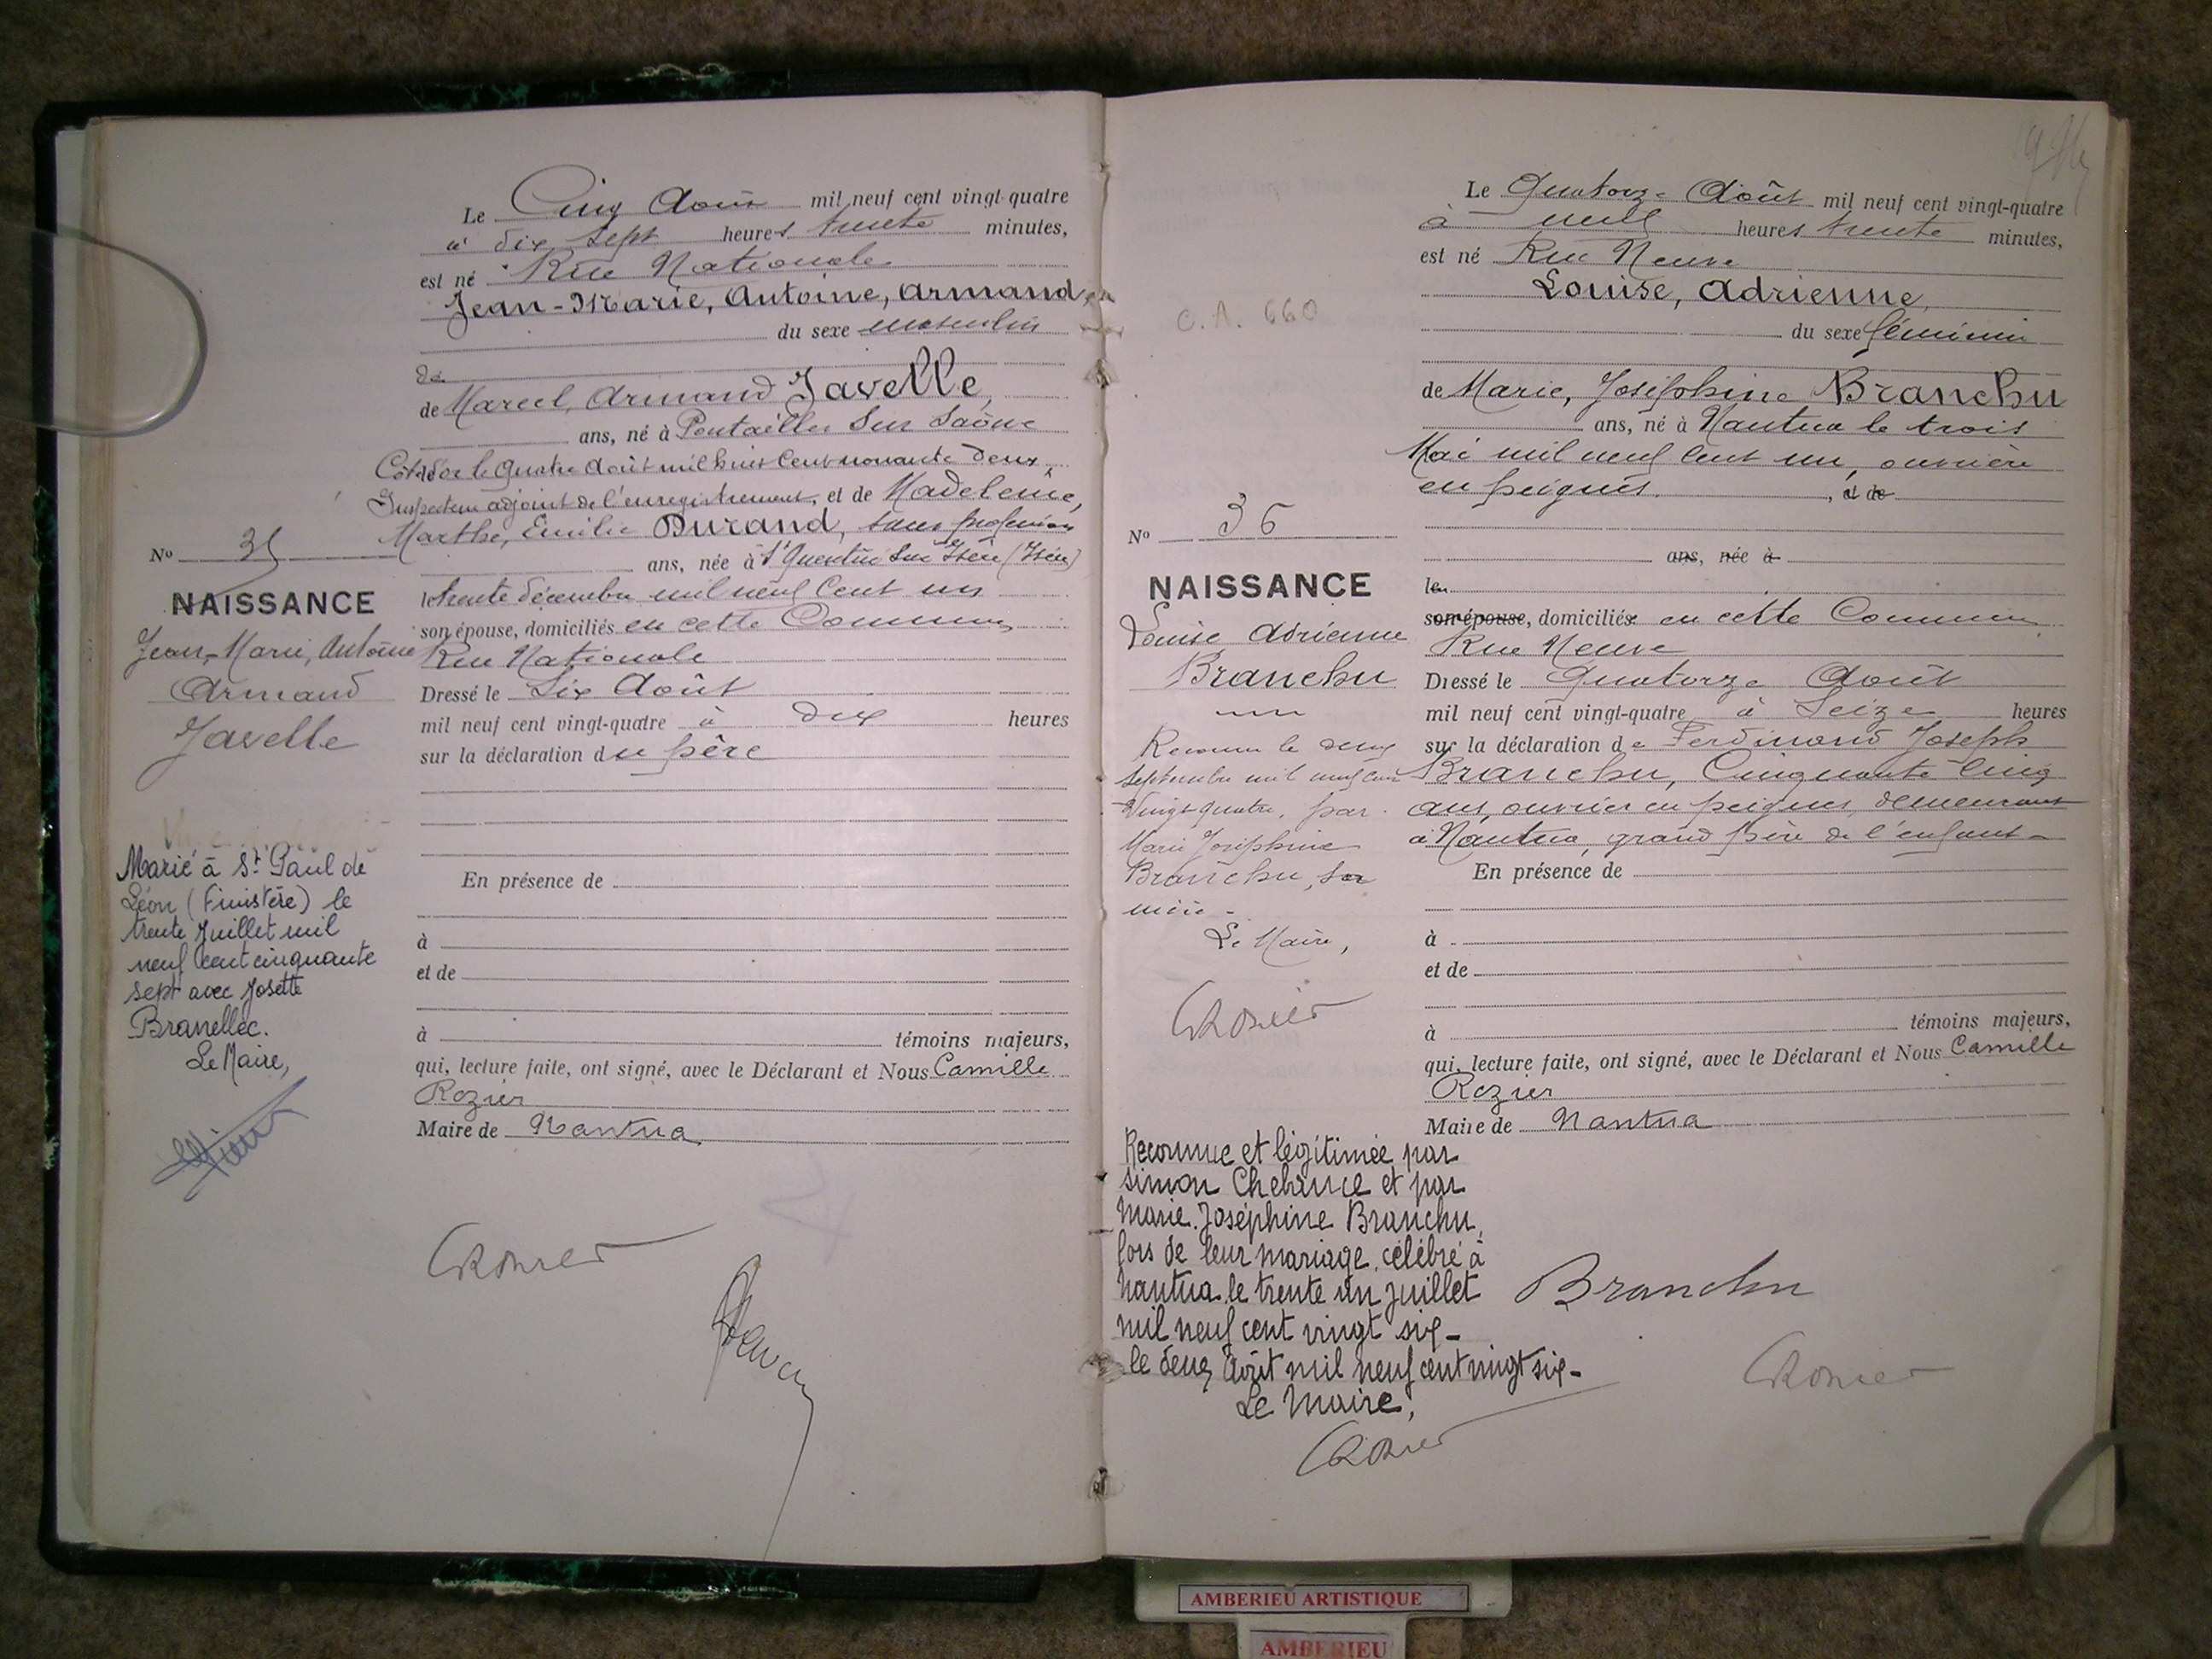 Le Cinq Août mil neuf cent vingt-quatre
à dix sept heures trente minutes,
est né Rue Nationale
Jean-Marie, Antoine, Armand,
du sexe masculin
de
de Marcel, Armand Javelle,
ans, né à Pontailler Sur Saône
Côte d'or le Quatre Août mil huit Cent nonante deux,
Inspecteur adjoint de l'enregistrement, et de Madeleine,
Marthe, Emilie Durand, sans profession
ans, née à St Quentin Sur Isère (Isère)
le trente décembre mil neuf Cent un
son épouse, domiciliés en cette Commune
Rue Nationale
Dressé le Six Août
mil neuf cent vingt-quatre à dix heures
sur la déclaration du père
En présence de
à
et de
à témoins majeurs,
qui, lecture faite, ont signé, avec le Déclarant et Nous Camille
Rozier
Maire de Nantua
No 35
NAISSANCE
Jean-Marie, Antoine
Armand
Javelle
Marié à St Paul de
Léon (Finistère) le
trente Juillet mil
neuf cent cinquante
sept avec Josette
Branellec.
Le Maire,
CRozier
Le Quatorze Août mil neuf cent vingt-quatre
à neuf heures trente minutes,
est né Rue Neuve
Louise, Adrienne,
du sexe féminin
de Marie, Joséphine Branchu
ans, né à Nantua le trois
Mai mil neuf Cent un, ouvrière
en peignes, et de
ans, née à
le
son épouse, domiciliée en cette Commune
Rue Neuve
Dressé le Quatorze Août
mil neuf cent vingt-quatre à Seize heures
sur la déclaration de Ferdinand Joseph
Branchu, Cinquante cinq
ans, ouvrier en peignes, demeurant
à Nantua, grand père de l'enfant
En présence de
à
et de
à témoins majeurs,
qui, lecture faite, ont signé, avec le Déclarant et Nous Camille
Rozier
Maire de Nantua
O.A. 660
No 36
NAISSANCE
Louise Adrienne
Branchu
Reconnu le deux
septembre mil neuf cent
vingt quatre, par
Marie Joséphine
Branchu, sa
mère -
Le Maire,
CRozier
Reconnue et légitimée par
Simon Chebance et par
Marie Joséphine Branchu,
lors de leur mariage célébré à
Nantua le trente un juillet
mil neuf cent vingt six -
le deux Août mil neuf cent vingt six -
Le Maire,
CRozier
Branchu
CRozier
AMBERIEU ARTISTIQUE
AMBERIEU